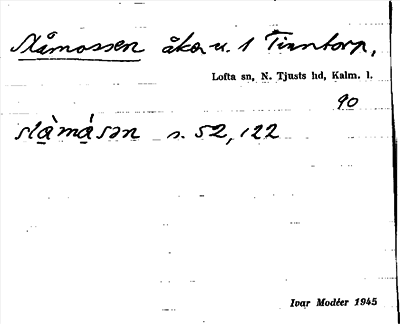 Slåmossen åker u. 1 Tinntorp,
Lofta sn, N. Tjusts hd, Kalm. l.
90
slà̱má̱sən s. 52, 122
Ivar Modéer 1945